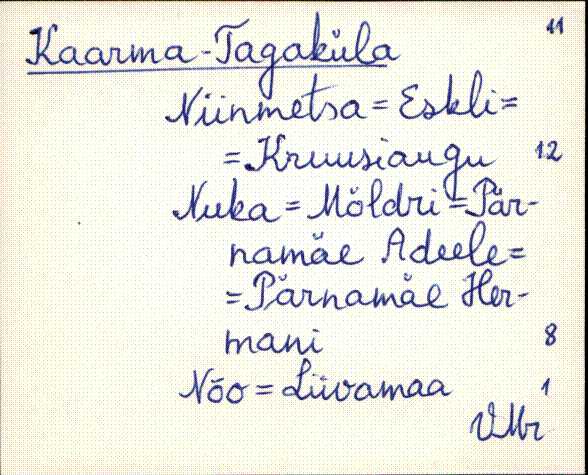 11
Kaarma-Tagaküla
Niinmetsa = Eskli =
= Kruusiaugu 12
Nuka = Möldri = Pär-
namäe Adeele =
= Pärnamäe Her-
mani 8
Nõo = Liivamaa 1
VMr